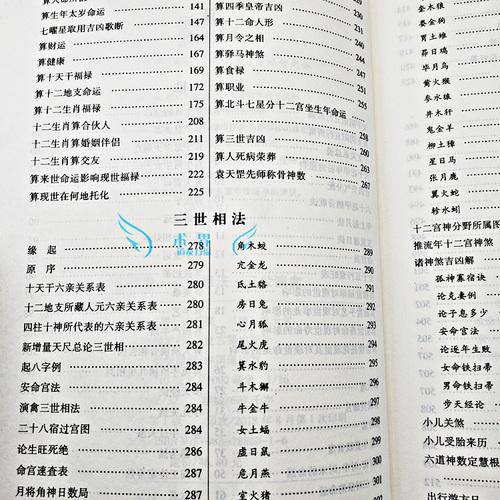 算生年太岁命运 141
七曜星取用吉凶歌断 147
算财运 164
算健康 169
算十天干福禄 172
算十二地支命运 175
十二生肖福禄 208
十二生肖算合伙人 211
十二生肖算婚姻伴侣 219
十二生肖算交友 222
算来世命运影响现世福禄 225
算现世在何地托化
算四季皇帝吉凶
算十二命人形
算月令之相
算驿马神煞
算食禄
算职业
算北斗七星分十二宫坐生年命运 255
算三世吉凶 258
算人死病荣葬 260
袁天罡先师称骨神数 267
三世相法
缘 起 278
原 序 279
十天干六亲关系表 280
十二地支所藏人元六亲关系表 280
四柱十神所代表的六亲关系表 281
新增量天尺总论三世相 282
起八字例 283
安命宫法 284
演禽三世相法 284
二十八宿过宫图 284
论生旺死绝 286
命宫速查表 287
月将角神日数局 287
角木蛟 289
亢金龙 290
氐土貉 291
房日兔 292
心月狐 293
尾火虎 294
箕水豹 295
斗木獬 296
牛金牛 297
女土蝠 298
虚日鼠 300
危月燕 301
室火猪 302
奎木狼
娄金狗
胃土雉
昴日鸡
毕月乌
觜火猴
参水猿
井木犴
鬼金羊
柳土獐
星日马
张月鹿
翼火蛇
轸水蚓
十二宫神分野所属图
推流年十二宫神煞
诸神煞吉凶解
孤神寡宿诀
论克妻例
论子息多少
安命宫法
论逐年生败
女命铁扫帚
男命铁扫帚
步天经论
小儿关煞
小儿受胎来历
六道神数定慧根
出行游方日